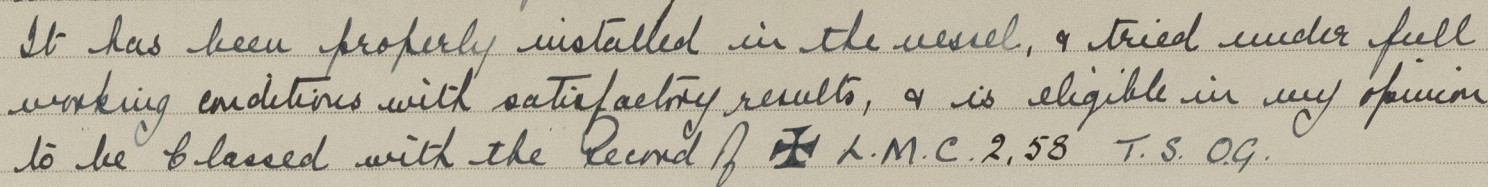 It has been properly installed in the vessel, & tried under full
working conditions with satisfactory results, & is eligible in my opinion
to be Classed with the Record of ✠ L.M.C. 2,58 T.S. O.G.